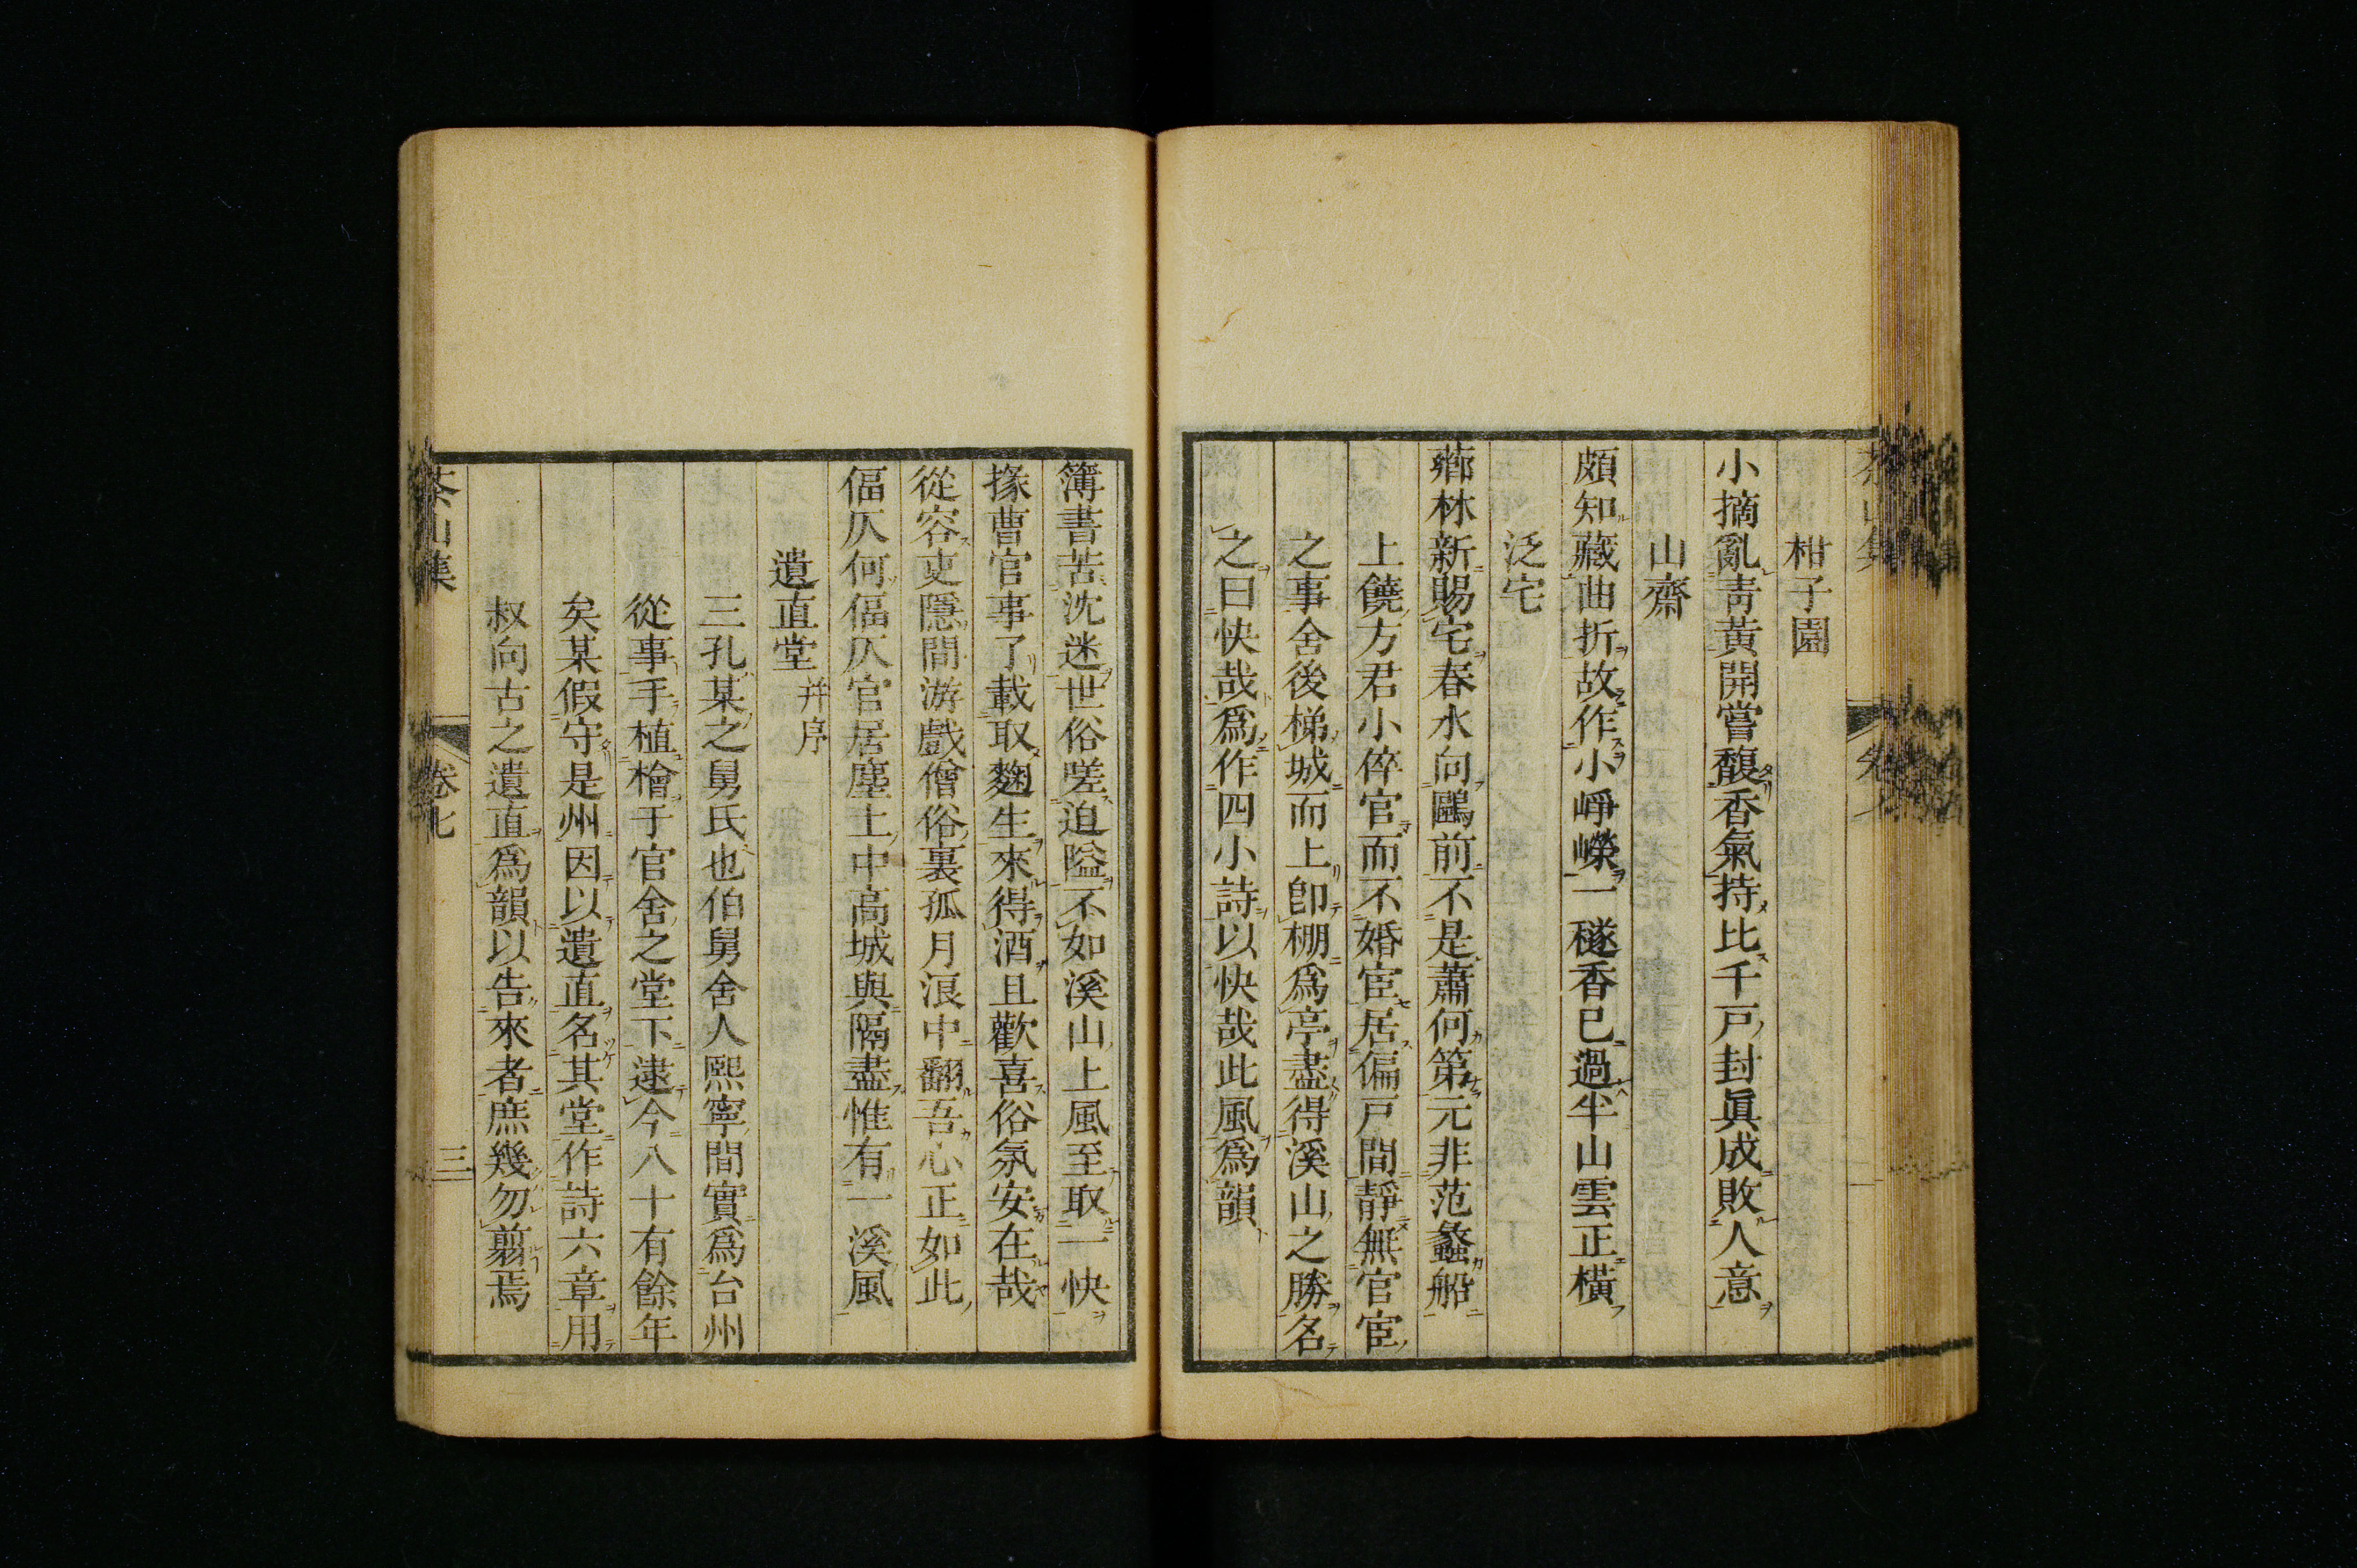 柑子園
小摘亂靑黃開嘗馥香氣持比千戸封眞成敗人意
山齋
頗知藏曲折故作小崢嶸一穟香已過半山雲正橫
泛宅
薌林新賜宅春水向鷗前不是蕭何第元非范蠡船
上饒方君小倅官而不婚宦居偏戸間靜無官宦
之事舍後梯城而上卽棚爲亭盡得溪山之勝名
之曰快哉爲作四小詩以快哉此風爲韻
簿書苦沈迷世俗嗟迫隘不如溪山上風至取一快
掾曹官事了載取麴生來得酒且歡喜俗氛安在哉
從容吏隱間游戲僧俗裏孤月浪中翻吾心正如此
偪仄何偪仄官居塵土中高城與隔盡惟有一溪風
遺直堂 并序
三孔某之舅氏也伯舅舍人熙寧間實爲台州
從事手植檜于官舍之堂下逮今八十有餘年
矣某假守是州因以遺直名其堂作詩六章用
叔向古之遺直爲韻以告來者庶幾勿翦焉
茶山集 卷七 三